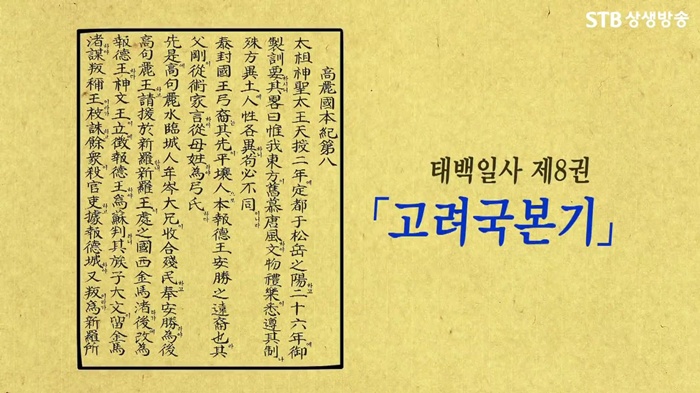 STB 상생방송
高麗國本紀第八
太祖神聖太王天授二年定都于松岳之陽二十六年御
製訓要其畧曰惟我東方舊慕唐風文物禮樂悉遵其制
殊方異土人性各異苟必不同
泰封國王弓裔其先平壤人本報德王安勝之遠裔也其
父剛從術家言從母姓爲弓氏
先是高句麗水臨城人牟岑大兄收合殘民奉安勝爲後
高句麗王請援於新羅新羅王處之國西金馬渚後改爲
報德王神文王立徵報德王爲蘇判其族子大文留金馬
渚謀叛稱王被誅餘衆殺官吏據報德城又叛爲新羅所
태백일사 제8권
「고려국본기」